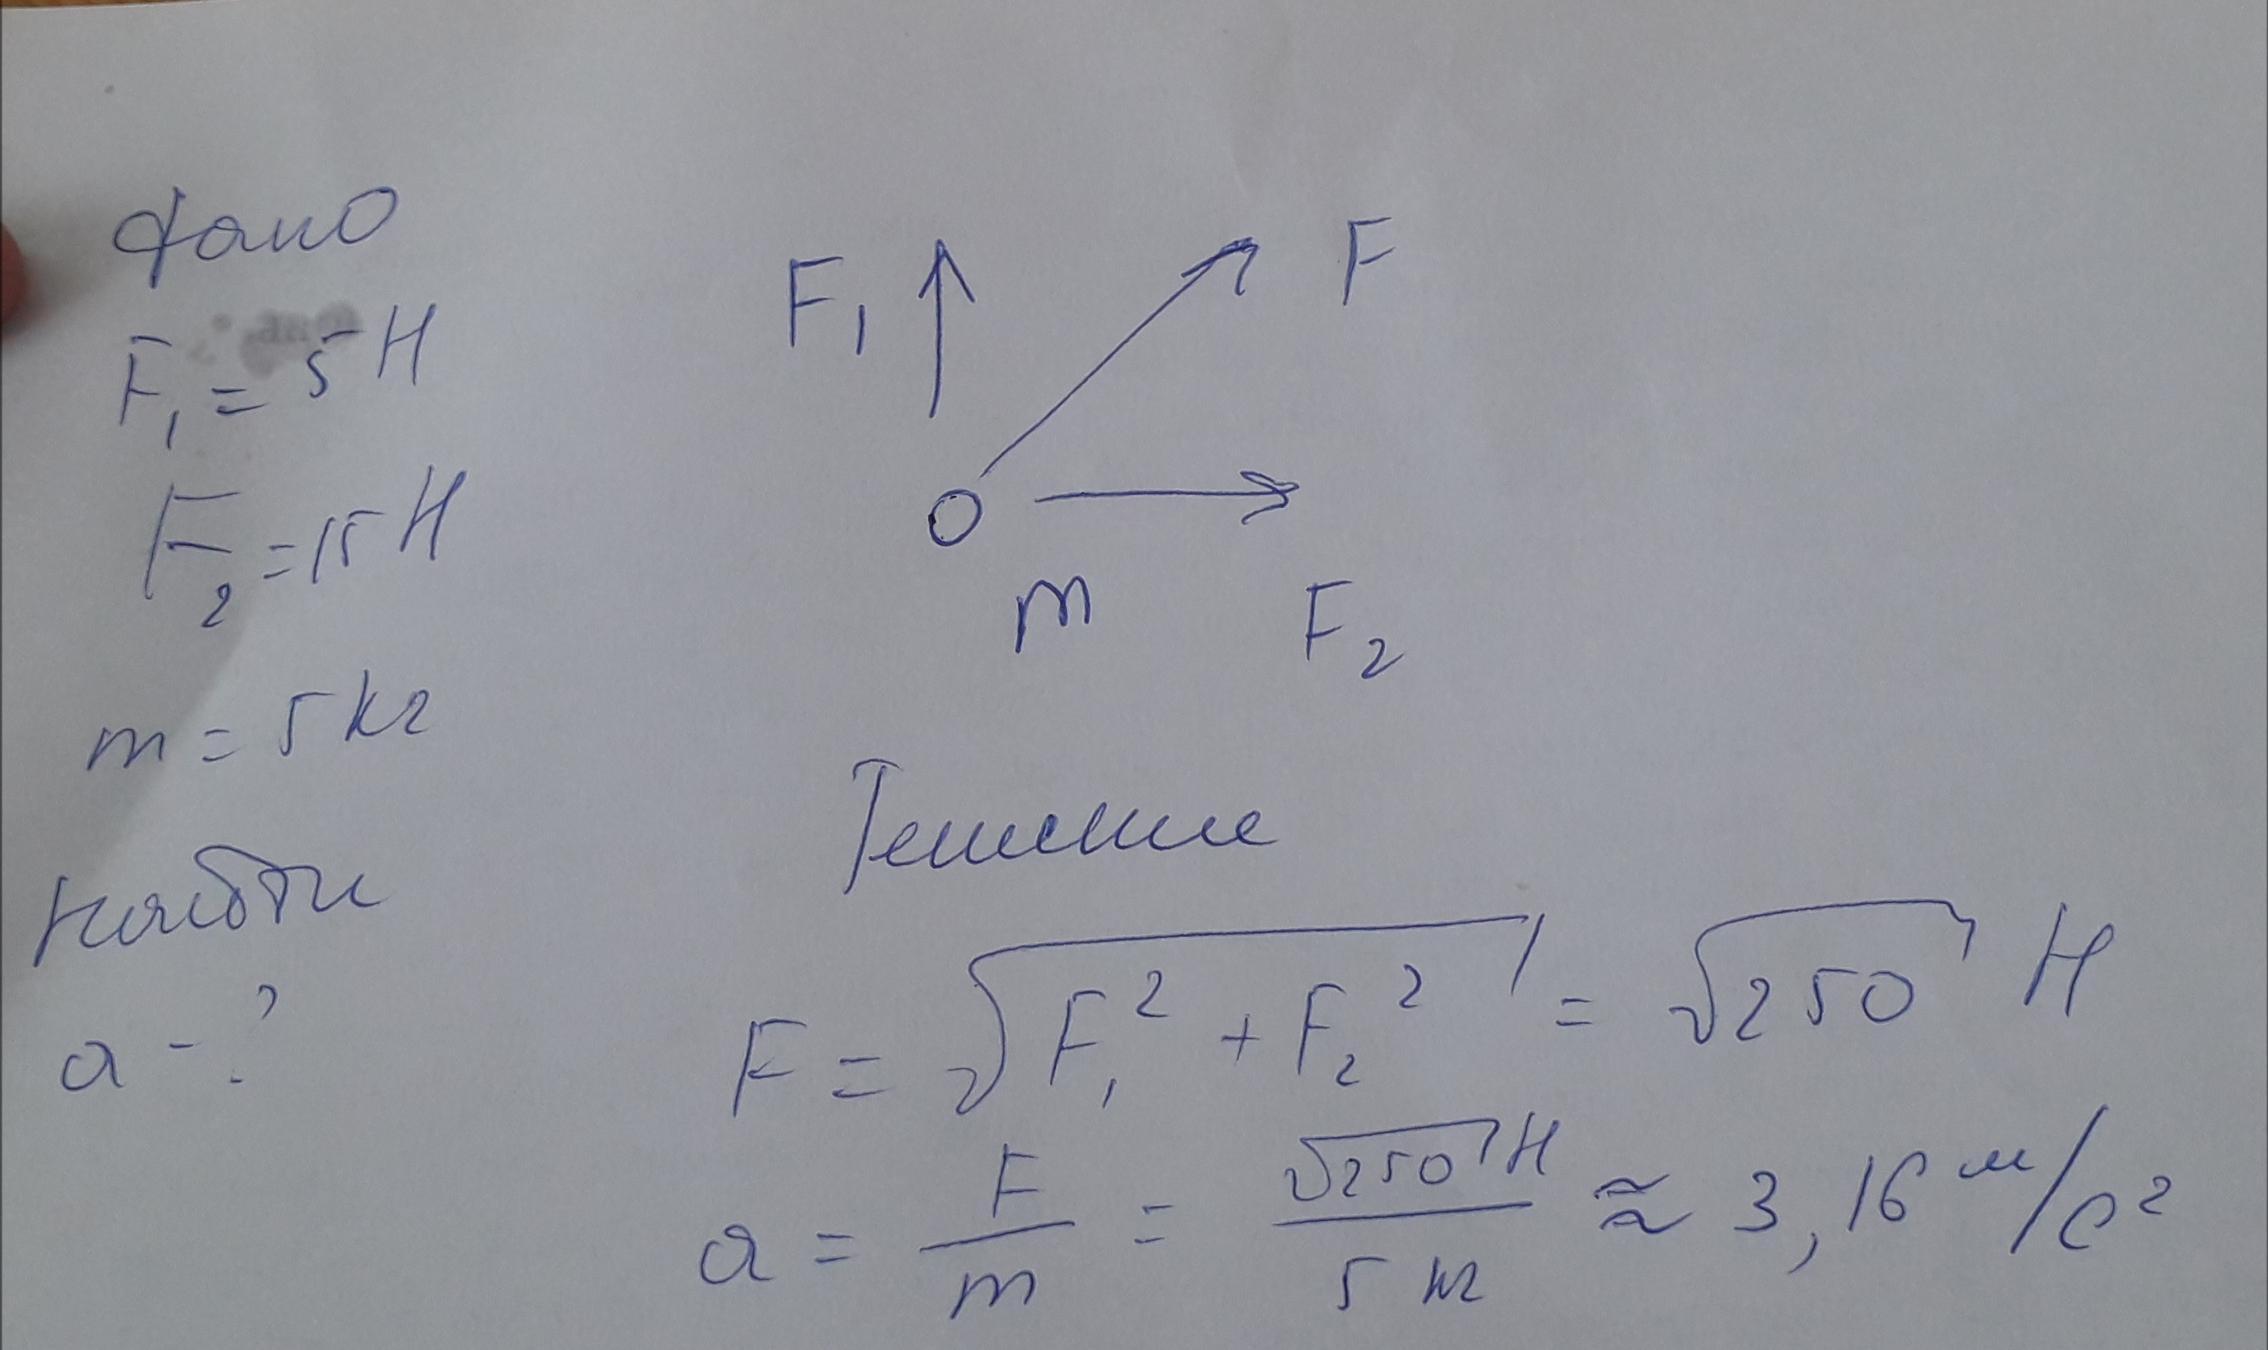 Дано
F₁ = 5 Н
F₂ = 15 Н
m = 5 кг
Найти
a - ?
F₁
F
m
F₂
Решение
F = √(F₁² + F₂²) = √250 Н
a = F/m = √250 Н / 5 кг ≈ 3,16 м/с²